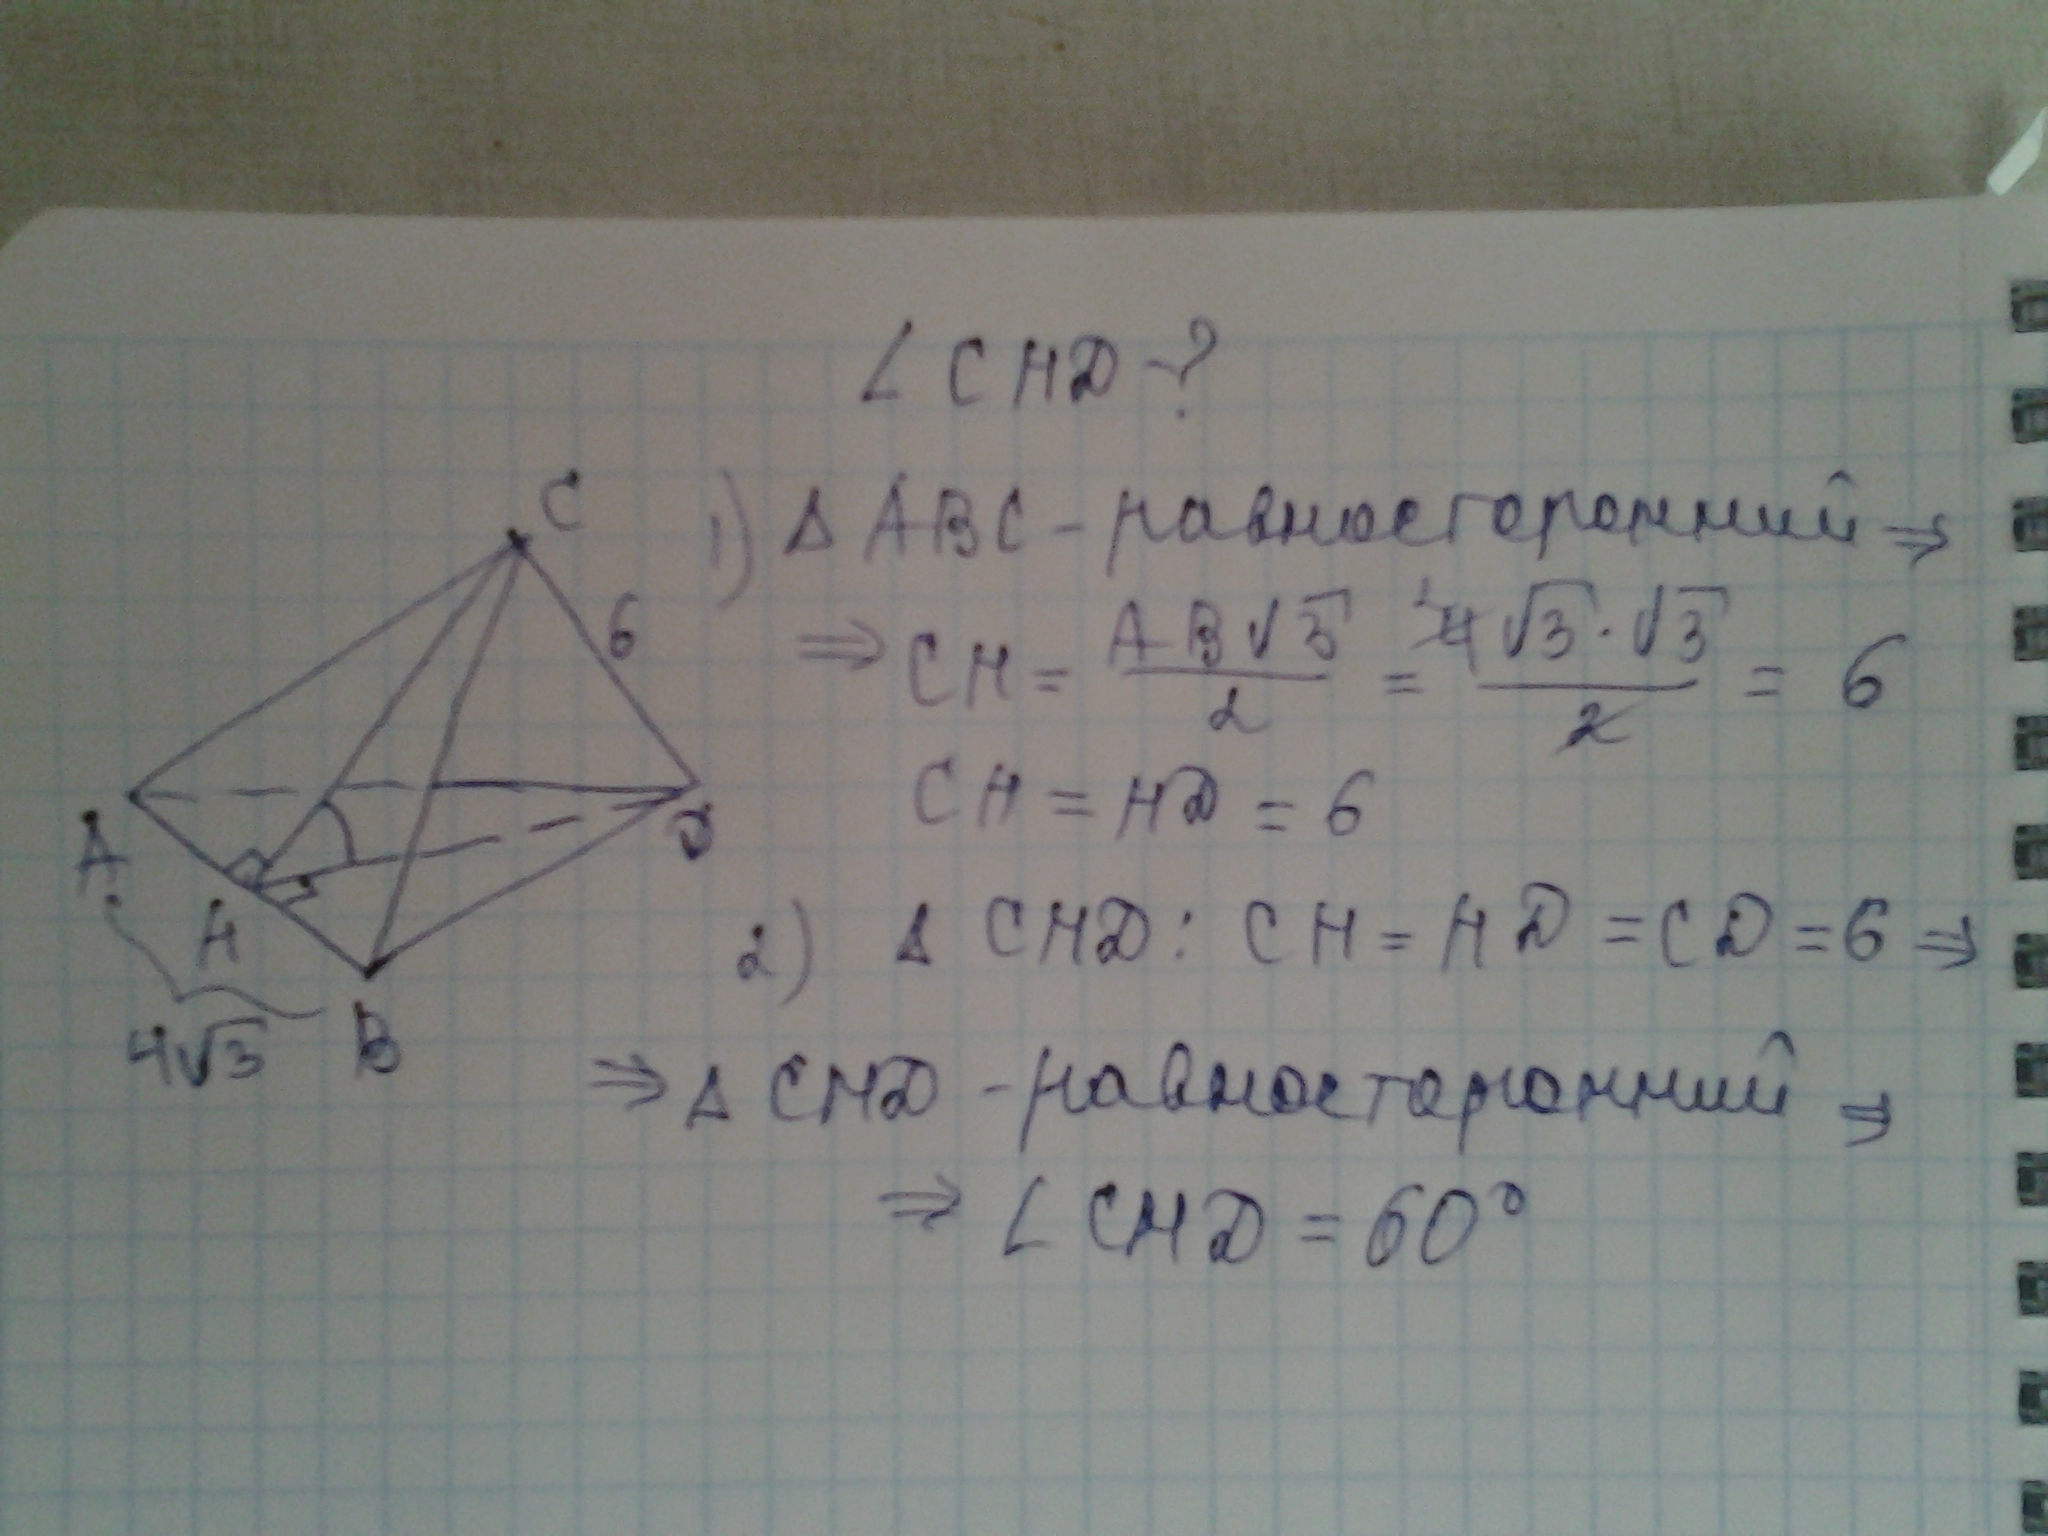 ∠CHD-?
C
1) Δ ABC - равносторонний ⇒
6
⇒ CH = AB√3/2 = 4√3·√3/2 = 6
CH = HD = 6
A
D
H
2) Δ CHD: CH = HD = CD = 6 ⇒
4√3
B
⇒ Δ CHD - равносторонний ⇒
⇒ ∠CHD = 60°